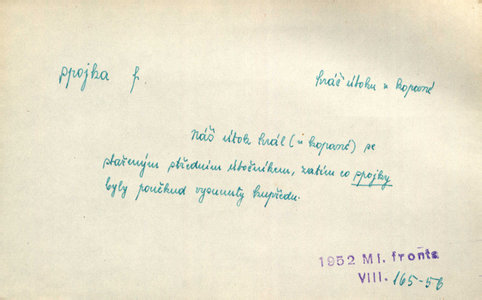 spojka f.
hráč útoku v kopané
Náš útok hrál (v kopané) se
staženým středním útočníkem, zatím co spojky
byly poněkud vysunuty kupředu.
1952 Ml. fronta
VIII. 165-56